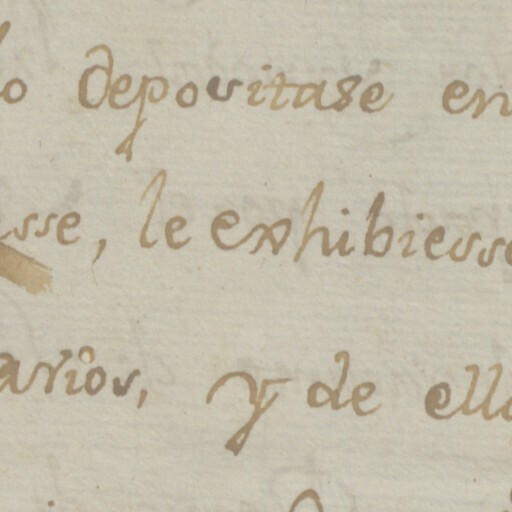 lo depositase en
esse, le exhibiesse
arios, y de ello